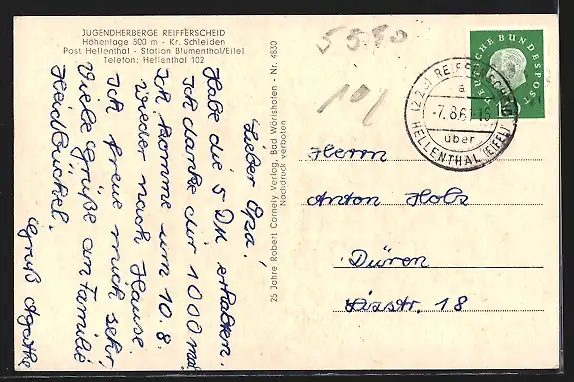 JUGENDHERBERGE REIFFERSCHEID
Höhenlage 500 m - Kr. Schleiden
Post Hellenthal - Station Blumenthal/Eifel
Telefon: Hellenthal 102
Lieber Opa!
Habe die 5 DM erhalten.
Ich danke dir 1000 mal
Ich komme am 10.8.
wieder nach Hause.
Ich freue mich sehr.
Viele Grüße an Familie
Heidbüchel.
Gruß Agathe
25 Jahre Robert Carnely Verlag, Bad Wörishofen - Nr. 4830
Nachdruck verboten
DEUTSCHE BUNDESPOST
10
(22c) REIFFERSCHEID
a
-7.8.61-18
über
HELLENTHAL (EIFEL)
Herrn
Anton Holz
Düren
18